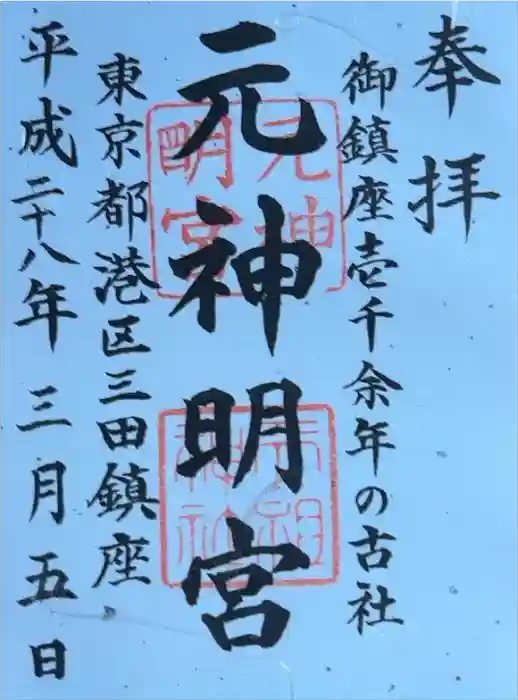 奉拝
御鎮座壱千余年の古社
元神明宮
東京都港区三田鎮座
平成二十八年三月五日
元神
明宮